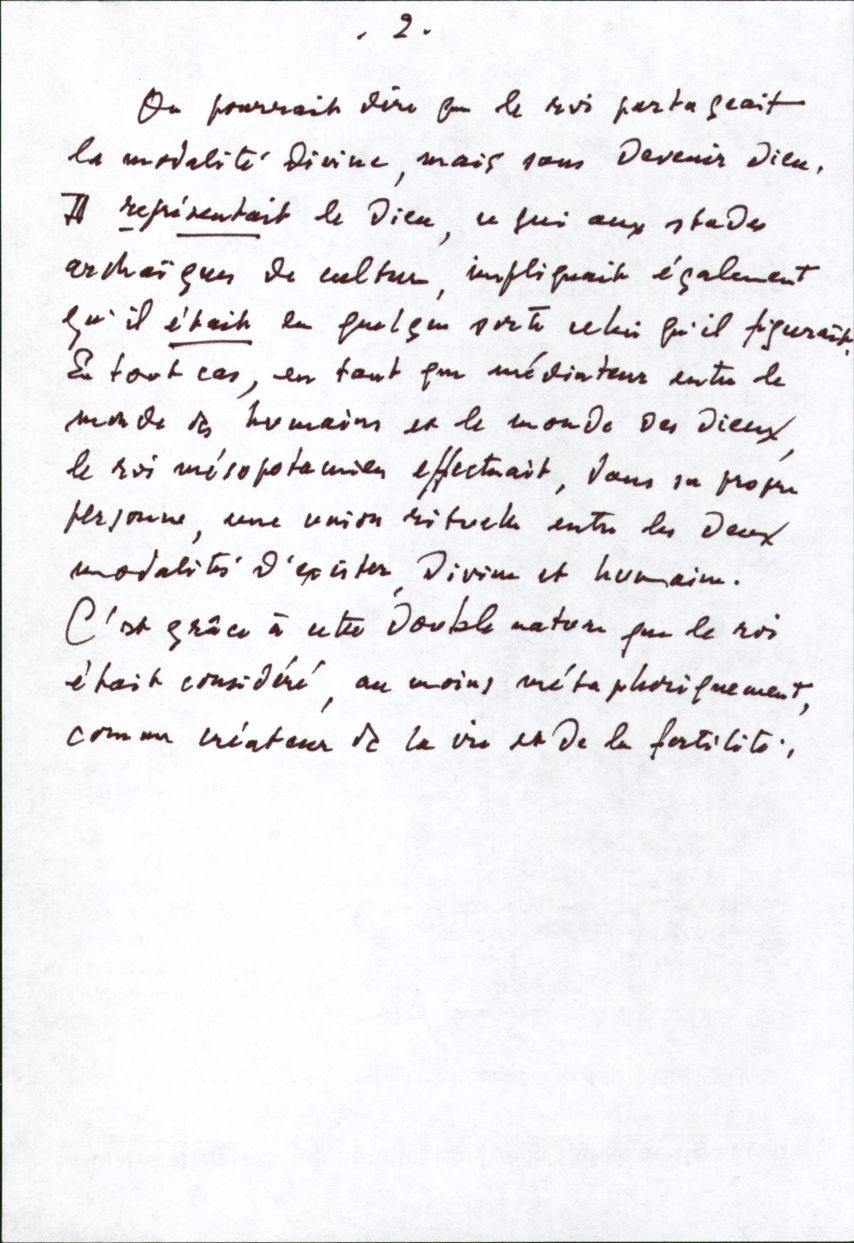 . 2 .
On pourrait dire que le roi partageait
la modalité divine, mais sans devenir Dieu.
Il représentait le Dieu, ce qui aux stades
archaïques de culture, impliquait également
qu'il était en quelque sorte celui qu'il figurait.
En tout cas, en tant que médiateur entre le
monde des humains et le monde des dieux,
le roi mésopotamien effectuait, dans sa propre
personne, une union rituelle entre les deux
modalités d'exister, divine et humaine.
C'est grâce à cette double nature que le roi
était considéré, au moins métaphoriquement,
comme créateur de la vie et de la fertilité.